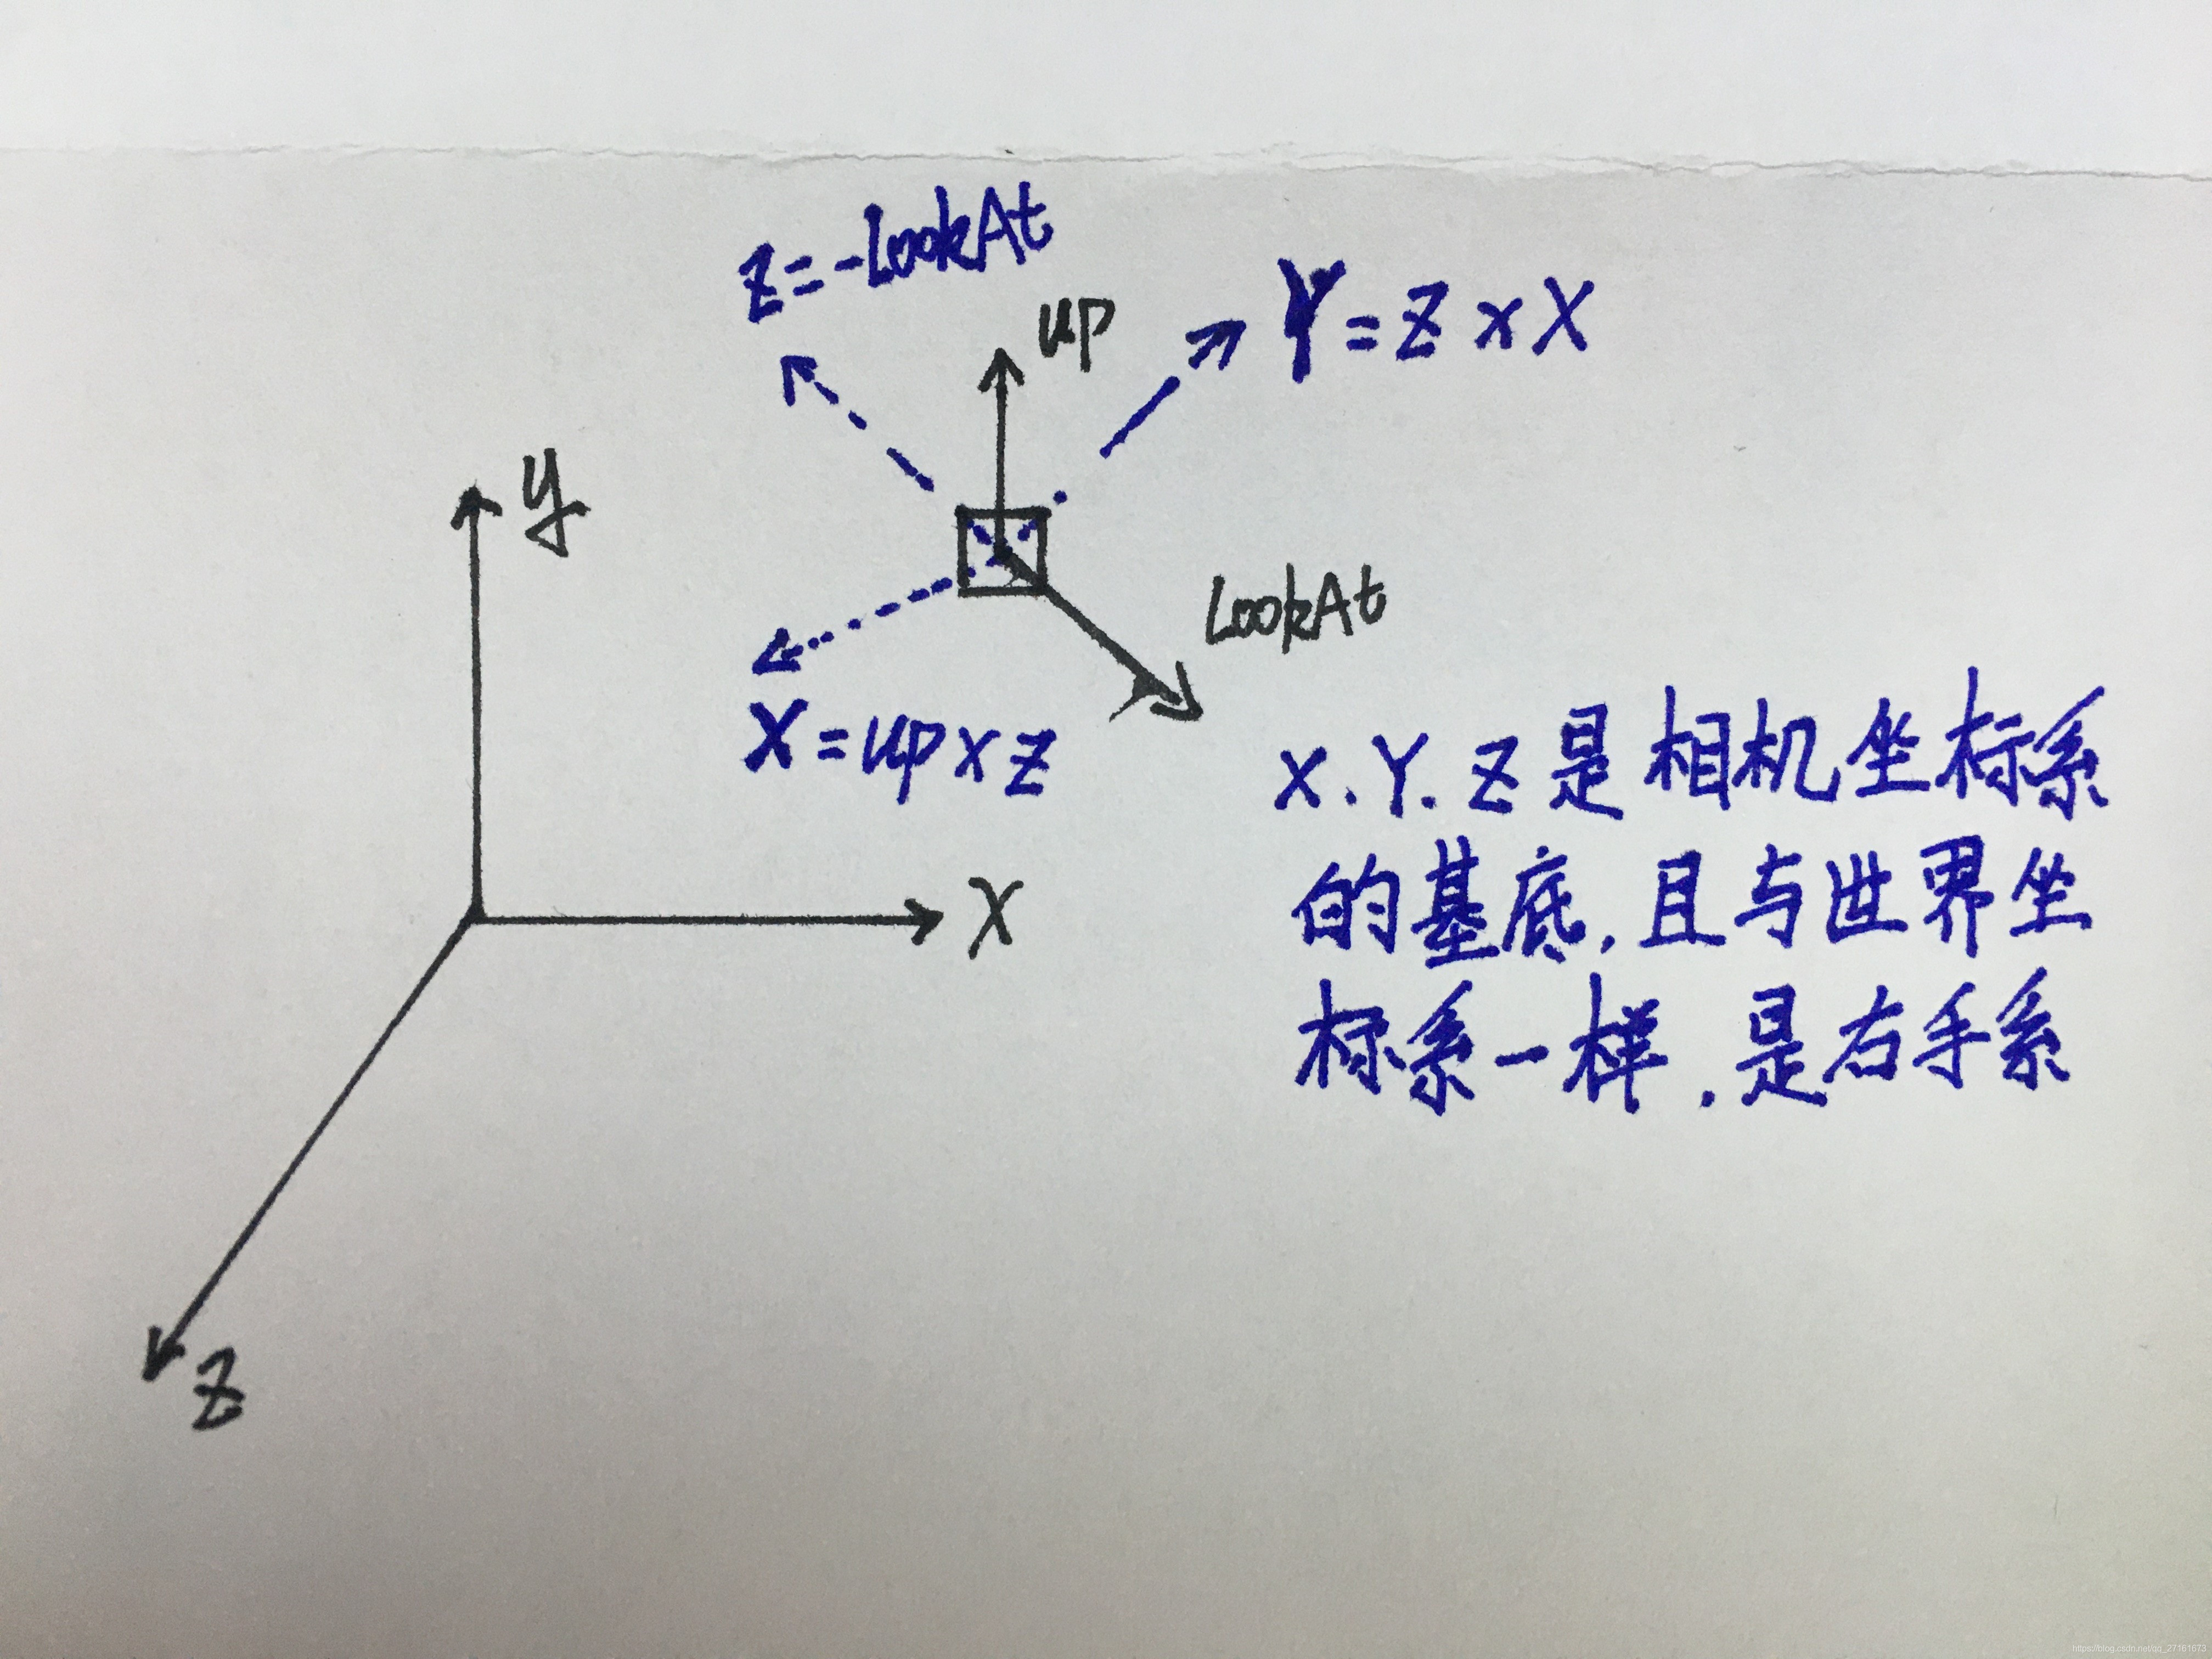 Z=-LookAt
up
Y=Z×X
y
LookAt
X=up×Z
X.Y.Z是相机坐标系
的基底,且与世界坐
标系一样.是右手系
X
Z
https://blog.csdn.net/qq_27161673